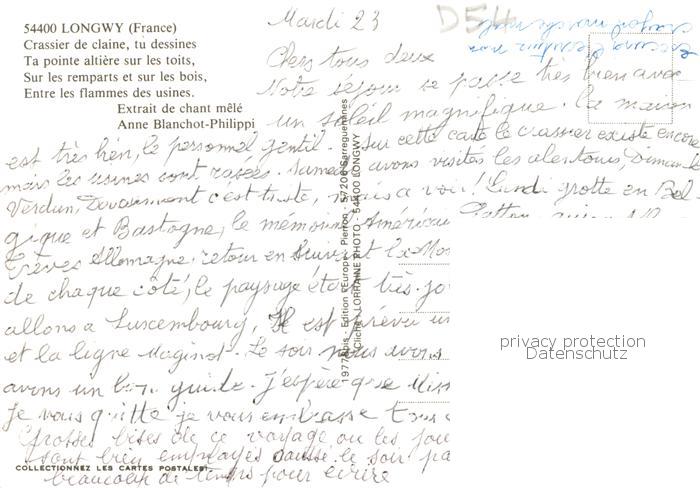 54400 LONGWY (France)
Crassier de claine, tu dessines
Ta pointe altière sur les toits,
Sur les remparts et sur les bois,
Entre les flammes des usines.
Extrait de chant mêlé
Anne Blanchot-Philippi
D54
Mardi 23
Chers tous deux
Notre séjour se passe très bien avec
un soleil magnifique. la maison
est très bien, le personnel gentil. Sur cette carte le crassier existe encore
mais les usines sont rasées. Samedi avons visités les alentours, Dimanche
Verdun, Douaumont c'est triste, mais a voir! Lundi grotte en Bel-
gique et Bastogne, le mémorial Américain
Trèves Allemagne retour en suivant la Mos
de chaque côté, le paysage était très jo
allons a Luxembourg, Il est prévu un
et la ligne Maginot. Le soir nous avons
avons un bon guide. J'espère que
Je vous quitte je vous embrasse tous
Grosses bises de ce voyage ou les jou
sont bien employés le soir pa
beaucoup de temps pour écrire
19772 bis - Edition d'Europe - Pierron - 57206 Sarreguemines
Cliché LORRAINE PHOTO - 54400 LONGWY
privacy protection
Datenschutz
COLLECTIONNEZ LES CARTES POSTALES!